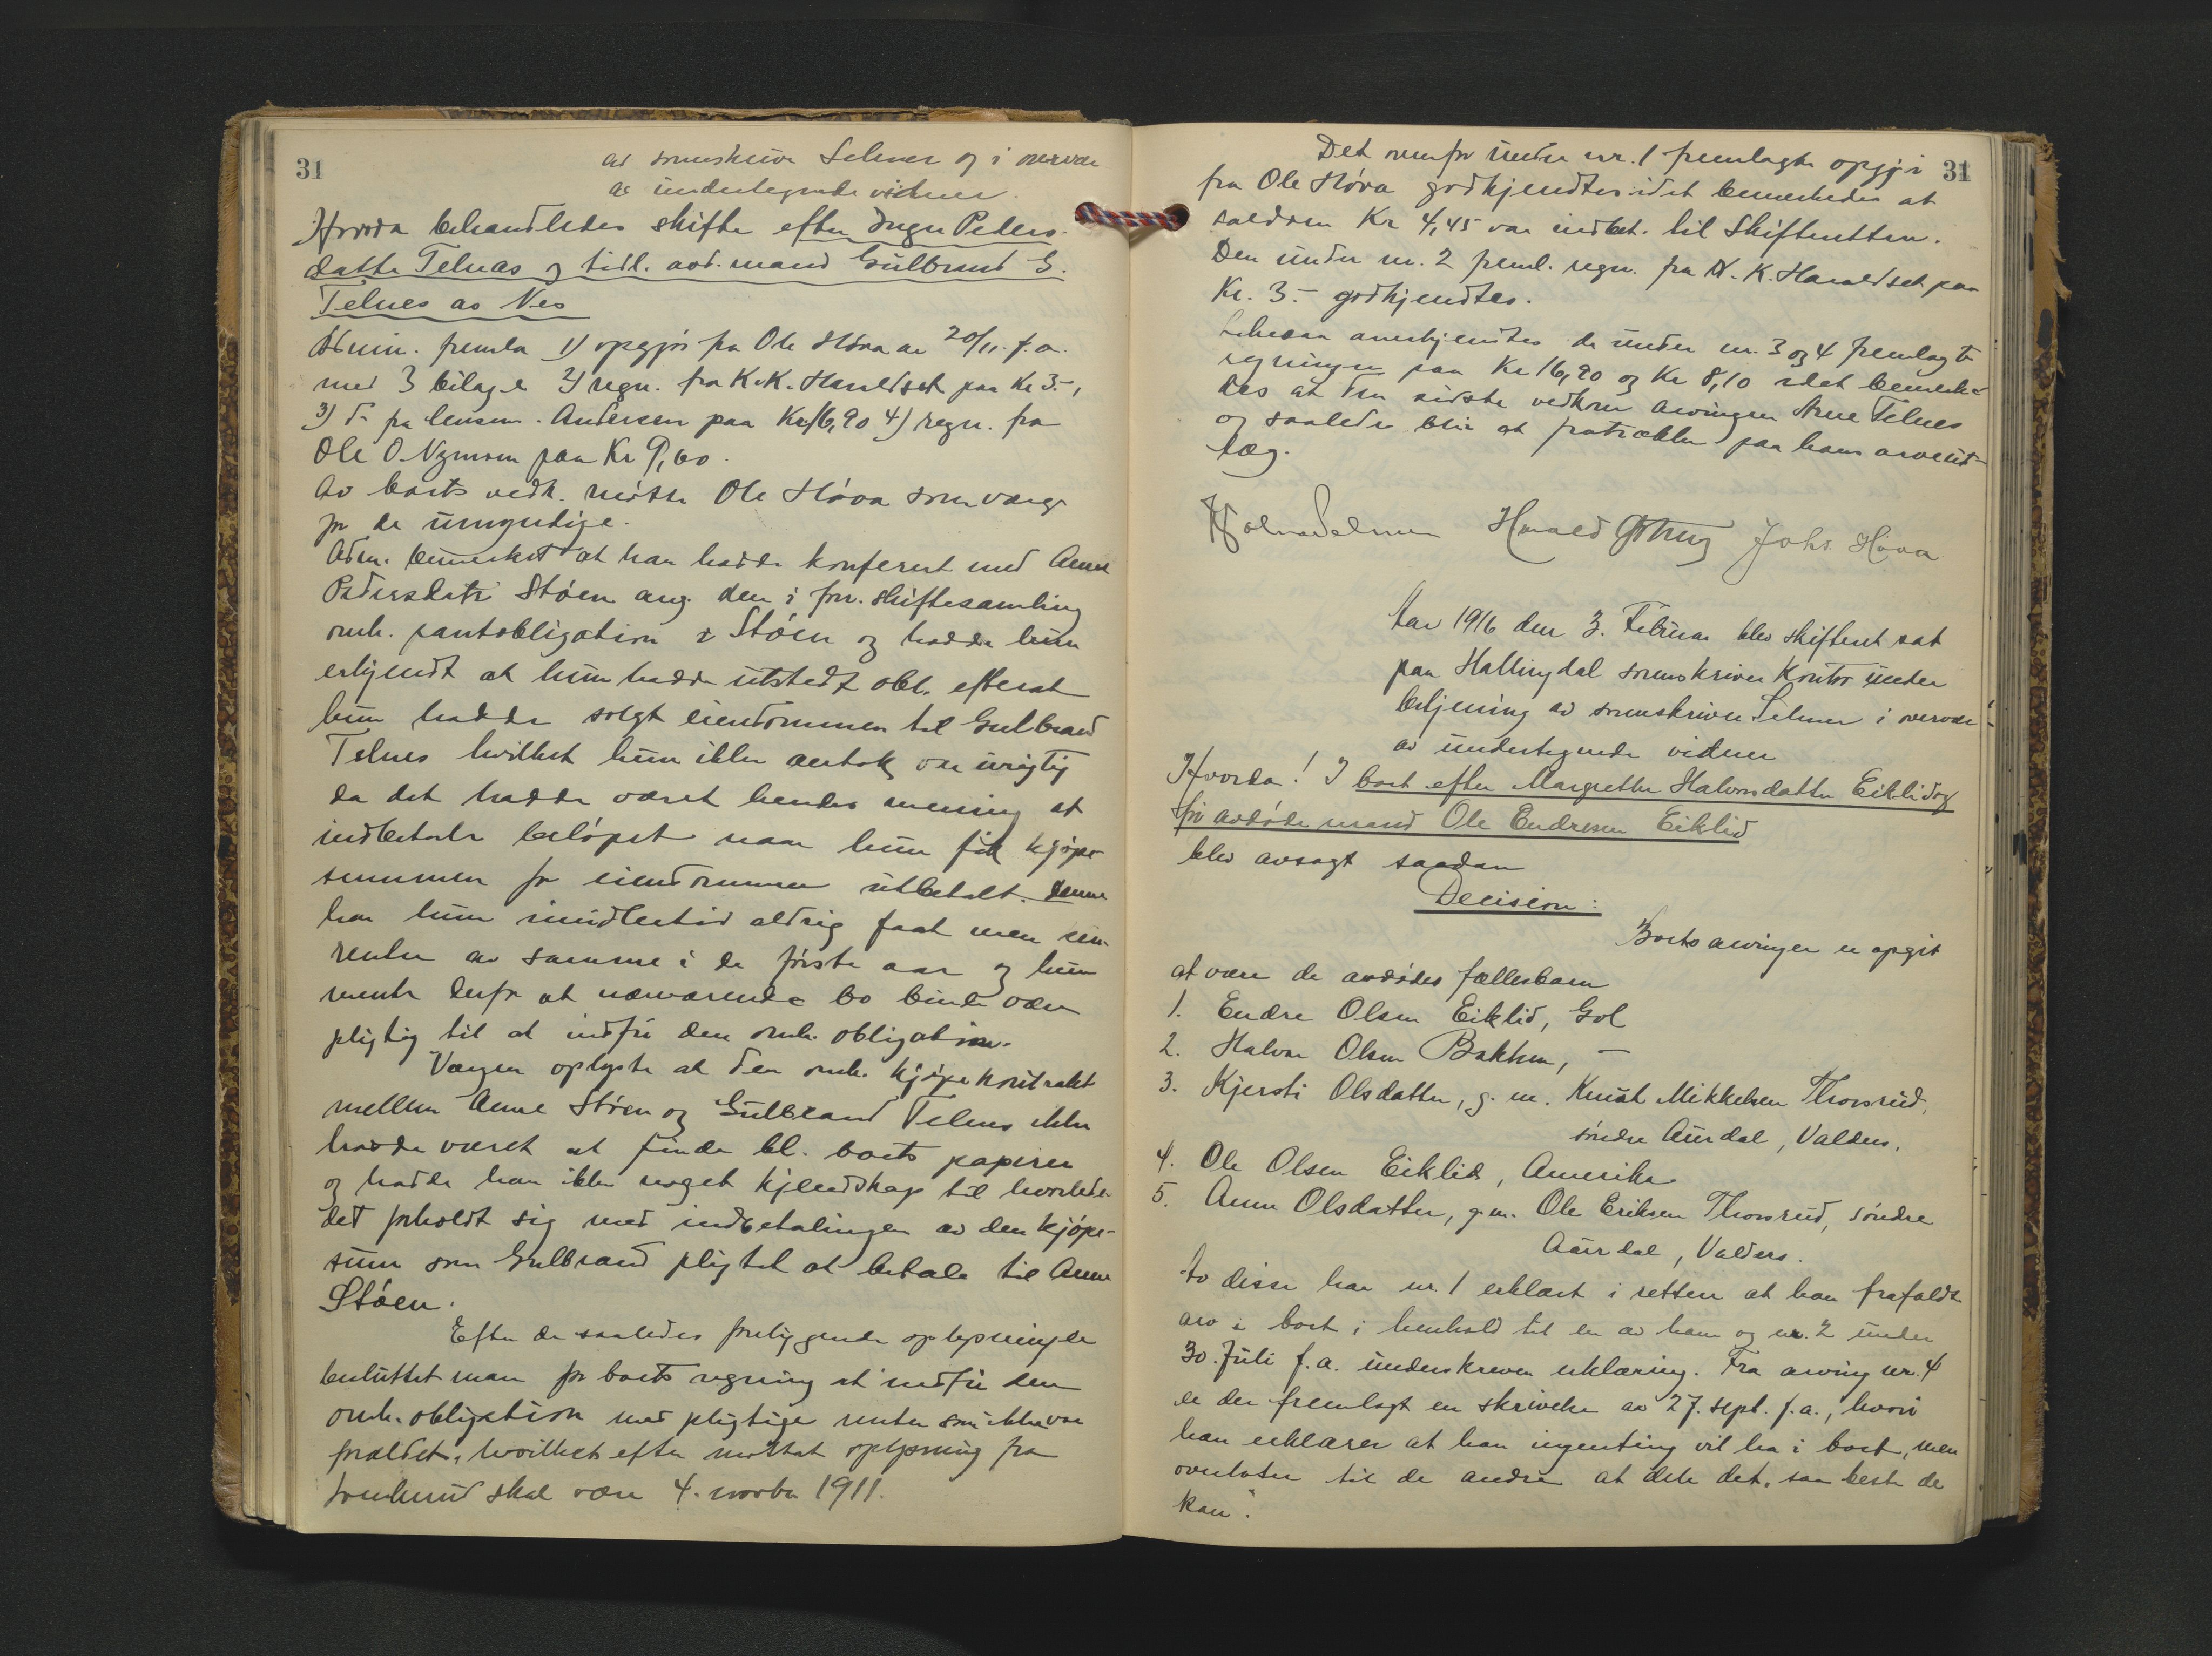 31
av sorenskriver Selmer og i overvær
av undertegnede vidner.
Hvorda behandledes skifte efter Inger Peders-
datter Telnæs og tidl. avd. mand Gulbrand G.
Telnes av Nes
Admin. fremla 1) opgjør fra Ole Høva av 20/11. f. a.
med 3 bilage 2) regn. fra K. K. Haraldset paa Kr 3.-,
3) do fra lensm. Andersen paa Kr 16,90 4) regn. fra
Ole O. Nymoen paa Kr 9,60.
Av boets vedk. møtte Ole Høva som verge
for de umyndige.
Adm. bemerket at han hadde konferert med Anne
Pedersdatter Støen ang. den i forr. skiftesamling
omh. pantobligation i Støen og hadde hun
erkjendt at hun hadde utstedt obl. efterat
hun hadde solgt eiendommen til Gulbrand
Telnes hvilket hun ikke antok var urigtig
da det hadde været hendes mening at
indbetale beløpet naar hun fik kjøpe-
summen for eiendommen utbetalt. Denne
har hun imidlertid aldrig faat men
renter av samme i de første aar og hun
mente derfor at nærværende bo burde være
pligtig til at indfri den omh. obligation.
Vergen oplyste at den omh. kjøpekontrakt
mellem Anne Støen og Gulbrand Telnes ikke
hadde været at finde bl. boets papirer
og hadde han ikke noget kjendskap til hvorledes
det forholdt sig med indbetalingen av den kjøpe-
sum som Gulbrand pligtet at betale til Anne
Støen.
Efter de saaledes foreliggende oplysninger
besluttet man for boets regning at indfri den
omh. obligation med pligtige renter som ikke var
forældet, hvilket efter mottat oplysning fra
skal være 4. novbr 1911.
31
Det ovenfor under nr. 1 fremlagte opgjør
fra Ole Høva godkjendtes idet bemerkedes at
saldoen Kr 4,45 var indbet. til Skifteretten.
Den under nr. 2 freml. regn. fra K. K. Haraldset paa
Kr. 3.- godkjendtes.
Likesaa anerkjendtes de under nr. 3 og 4 fremlagte
regninger paa Kr 16,90 og Kr 8,10 idet bemerke-
des at den sidste vedkom arvingen Arne Telnes
og saaledes blir at fratrække paa hans arveut-
læg.
Harald Johs Høva
Aar 1916 den 3. Februar blev skifteret sat
paa Hallingdal sorenskriver Kontor under
betjening av sorenskriver Selmer i overvær
av undertegnede vidner
Hvorda! I boet efter Margrethe Halvorsdatter Eiklid og
før avdøde mand Ole Endresen Eiklid
blev avsagt saadan
Decision:
Boets arvinger er opgit
at være de avdødes fællesbarn
1. Endre Olsen Eiklid, Gol
2. Halvor Olsen Bakken, —
3. Kjersti Olsdatter, g. m. Knut Mikkelsen Thorsrud,
søndre Aurdal, Valders.
4. Ole Olsen Eiklid, Amerika
5. Anne Olsdatter, g. m. Ole Eriksen Thorsrud, søndre
Aurdal, Valders.
Av disse har nr. 1 erklært i retten at han frafaldt
arv i boet i henhold til en av ham og nr. 2 under
30. Juli f. a. underskreven erklæring. Fra arving nr. 4
er der fremlagt en skrivelse av 27. sept. f. a., hvori
han erklærer at han ingenting vil ha i boet, men
overlater til de andre at dele det, saa beste de
kan".